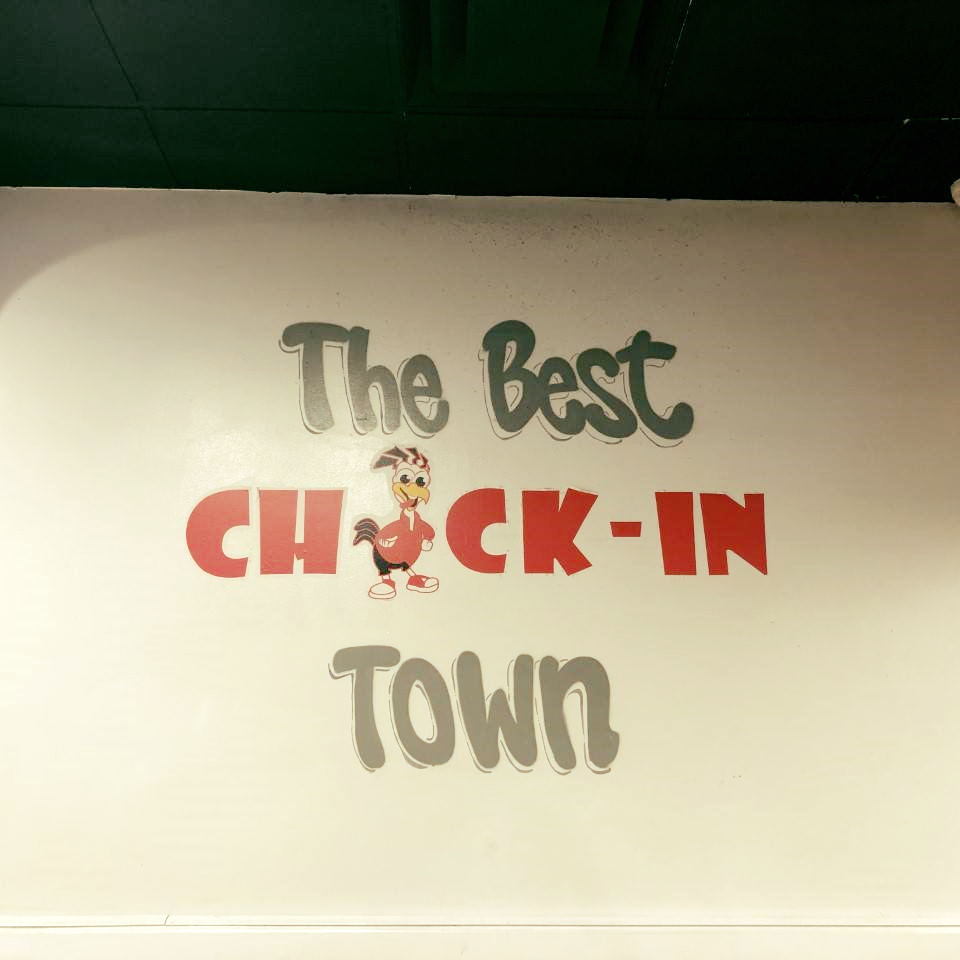 The Best
CHICK-IN
Town